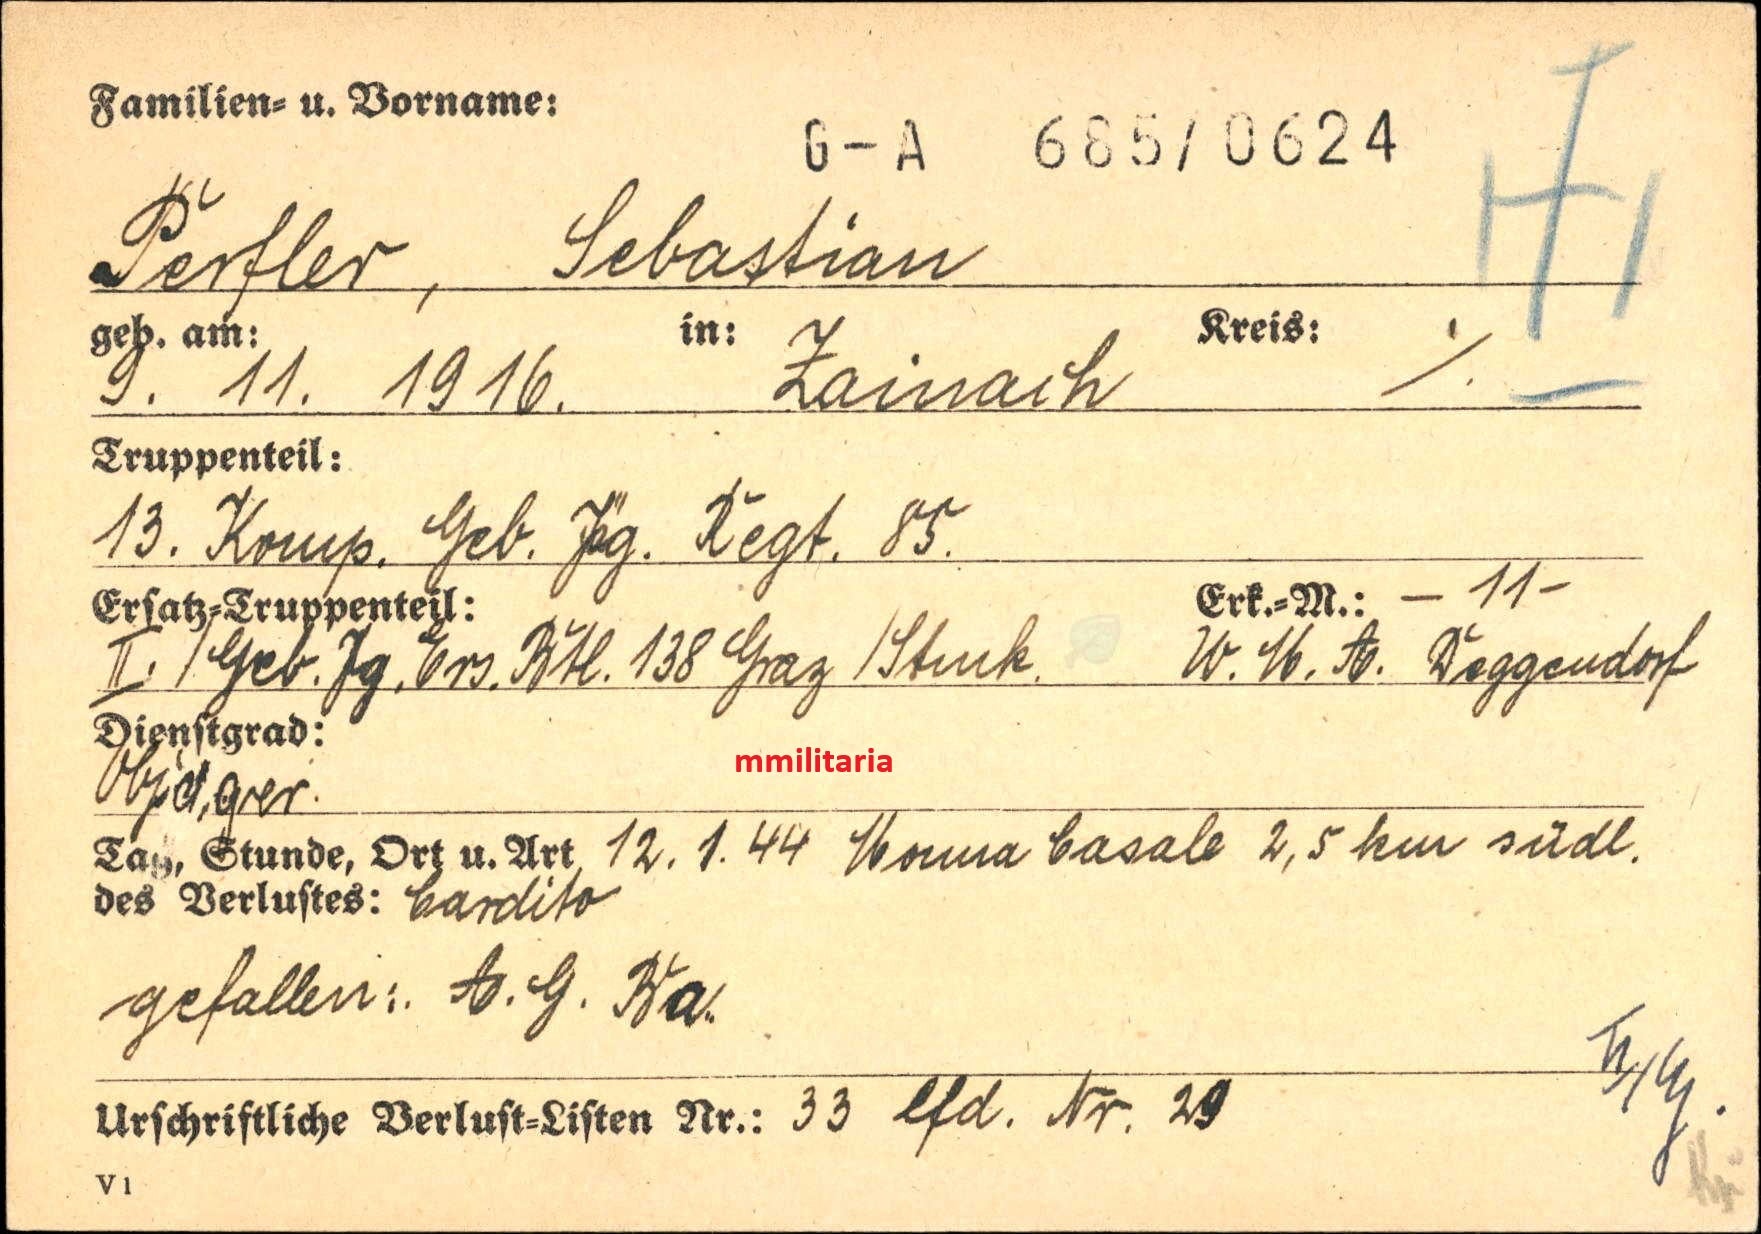 Familien- u. Vorname:
G-A 685/0624
Perfler, Sebastian
geb. am: in: Kreis:
9. 11. 1916. Zainach ./.
Truppenteil:
13. Komp. Geb. Jäg. Regt. 85.
Ersatz-Truppenteil: Erk.-M.: – 11 –
II. / Geb. Jg. Ers. Btl. 138 Graz / W. M. A. Deggendorf
Dienstgrad:
Objäger.
mmilitaria
Tag, Stunde, Ort u. Art 12. 1. 44 Monna Casale 2,5 km südl.
des Verlustes: Cardito
gefallen: A. G. Ba.
Urschriftliche Verlust-Listen Nr.: 33 lfd. Nr. 29
V1